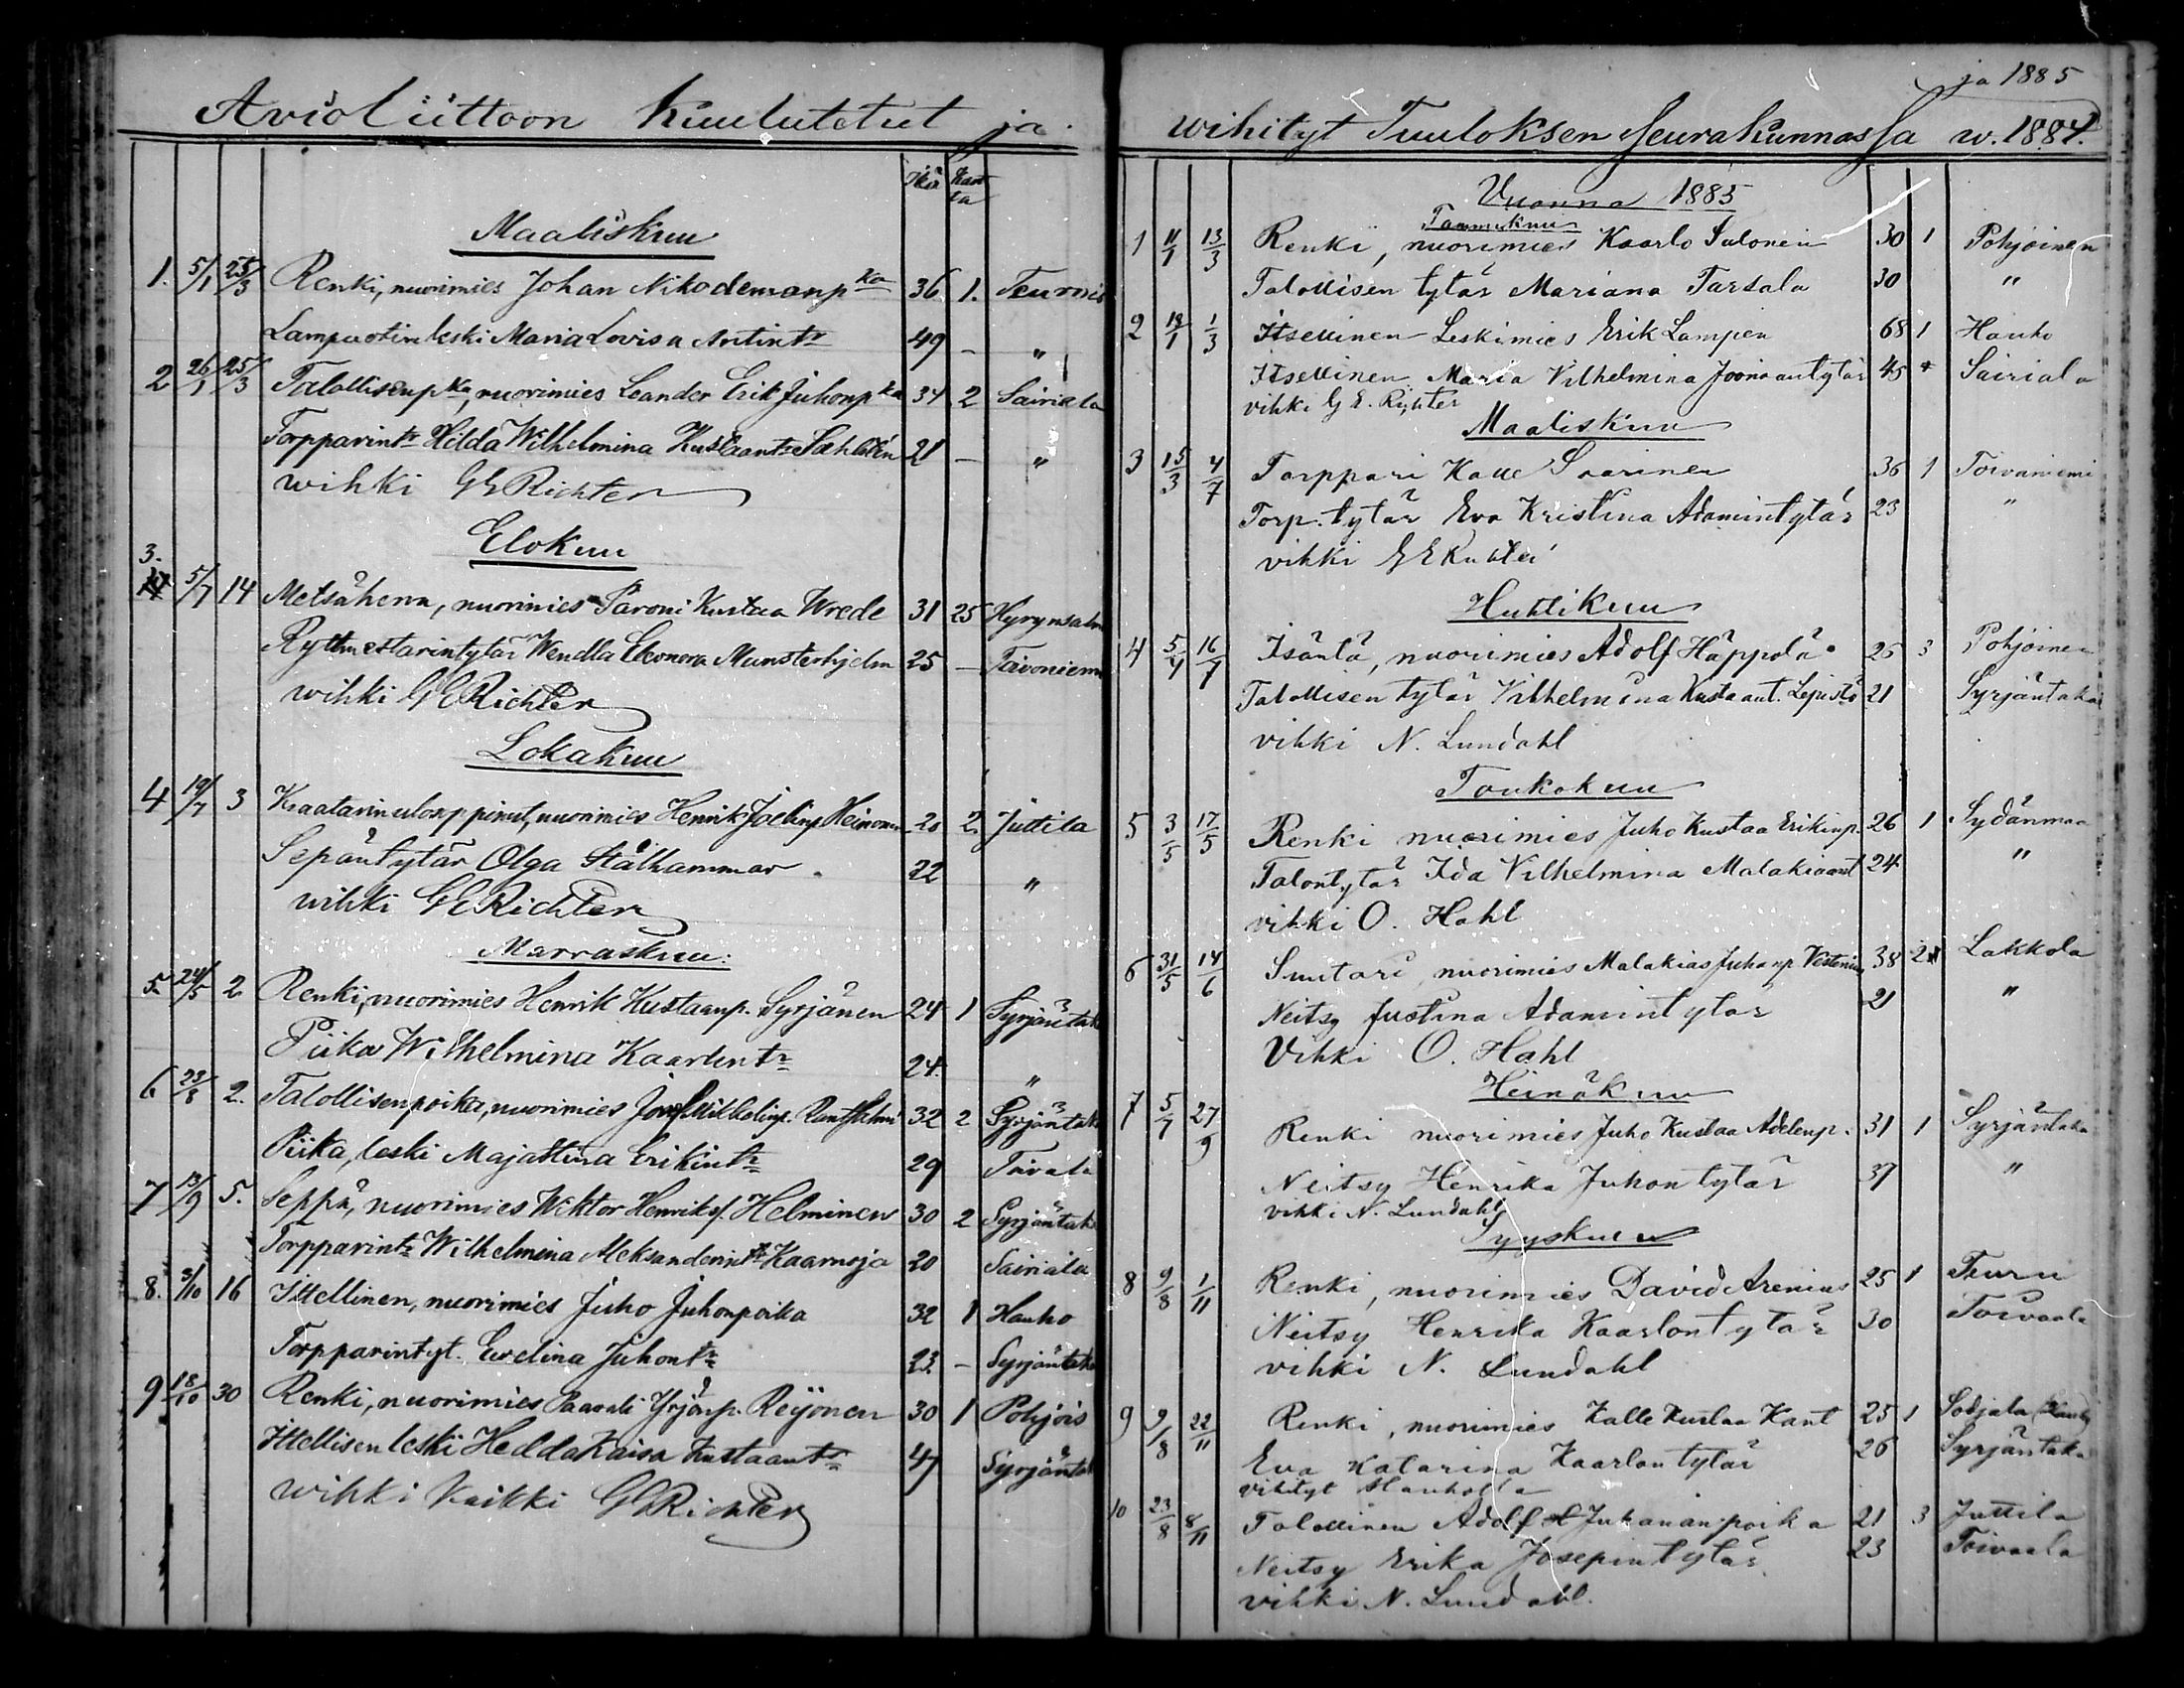 Avioliittoon kuulutetut ja
Ikä Kansta
Maaliskuu
1. 5/1 25/3 Renki, nuorimies Johan Nikodemanp ka 36 1. Teuronis
Lampuotin leski Maria Lovisa Antintr 49 — "
2 26/1 25/3 Talollisenp ka, nuorimies Leander Erik Juhonp ka 34 2 Sairiala
Torpparintr Hilda Wilhelmina Kustaantr Sahlstén 21 — "
wihki GE Richter
Elokuu
3. 5/7 14 Metsäherra, nuorimies Paroni Kustaa Wrede 31 25 Hyrynsalm
Rytmestarintytär Wendla Eleonora Munsterhjelm 25 — Toivoniem
wihki GE Richter
Lokakuu
4 19/7 3 Kraatarin nuorimies Henrik Joelinp Heinonen 20 2. Juttila
Sepäntytär Olga Stålhammar. 22 "
wihki GE Richter
Marraskuu:
5. 24/5 2 Renki, nuorimies Henrik Kustaanp. Syrjänen 24 1 Syrjäntak
Piika Wilhelmina Kaarlentr 24. "
6. 23/8 2. Talollisenpoika, nuorimies Josef Mikkelinp. 32 2 Syrjäntak
Piika, leski Majastina Erikintr 29 Toivala
7 13/9 5. Seppä, nuorimies Wiktor Henrikp. Helminen 30 2 Syrjäntak
Torpparintr Wilhelmina Aleksanderintr Kaarnoja 20 Sairiala
8. 5/10 16 Itsellinen, nuorimies Juho Juhonpoika 32 1 Hauho
Torpparintyt. Evelina Juhontr 23. — Syrjäntak
9 18/10 30 Renki, nuorimies Paavali Yrjönp. Reijonen 30 1 Pohjois
Itsellisen leski Hedda Kaisa Kustaantr 47 Syrjäntak
wihki Kaikki GE Richter
ja 1885
wihityt Tuuloksen Seurakunnassa w. 1884.
Vuonna 1885
Tammikuu
1 11/1 13/3 Renki, nuorimies Kaarlo Salonen 30 1 Pohjoinen
Talollisen tytär Mariana Tarsala 30 "
2 18/1 1/3 Itsellinen Leskimies Erik Lampen 68 1 Hauho
Itsellinen Maria Vilhelmina Joonaantytär 45 Sairiala
vihki G E. Richter
Maaliskuu
3 15/3 4/7 Torppari Kalle Saarinen 36 1 Toivaniemi
Torp. tytär Eva Kristina Adamintytär 23 "
vihki G E Richter
Huhtikuu
4 5/4 16/7 Isäntä, nuorimies Adolf Häppölä 26 3 Pohjoinen
Talollisen tytär Vilhelmina Kustaant. Lepistö 21 Syrjäntaka
vihki N. Lundahl
Toukokuu
5 3/5 17/5 Renki nuorimies Juho Kustaa Erikinp. 26 1 Sydänmaa
Talontytär Ida Vilhelmina Malakiaant 24 "
vihki O. Hahl
6 31/5 14/6 Suutari nuorimies Malakias Juhanp Vestenius 38 2 Lakkola
Neitsy Justina Adamintytär 21 "
Vihki O. Hahl
Heinäkuu
7 5/7 27/9 Renki nuorimies Juho Kustaa Adelenp. 31 1 Syrjäntaka
Neitsy Henrika Juhontytär 37 "
vihki N. Lundahl
Syyskuu
8 9/8 1/11 Renki, nuorimies David Arenius 25 1 Teuru
Neitsy Henrika Kaarlontytär 30 Toivaala
vihki N. Lundahl
9 9/8 22/11 Renki, nuorimies Kalle Kustaa Kant 25 1 Sotjala (Hauho)
Eva Katarina Kaarlontytär 26 Syrjäntaka
vihityt Hauholla
10 23/8 8/11 Talollinen Adolf Juhananpoika 21 3 Juttila
Neitsy Erika Josepintytär 23 Toivaala
vihki N. Lundahl.